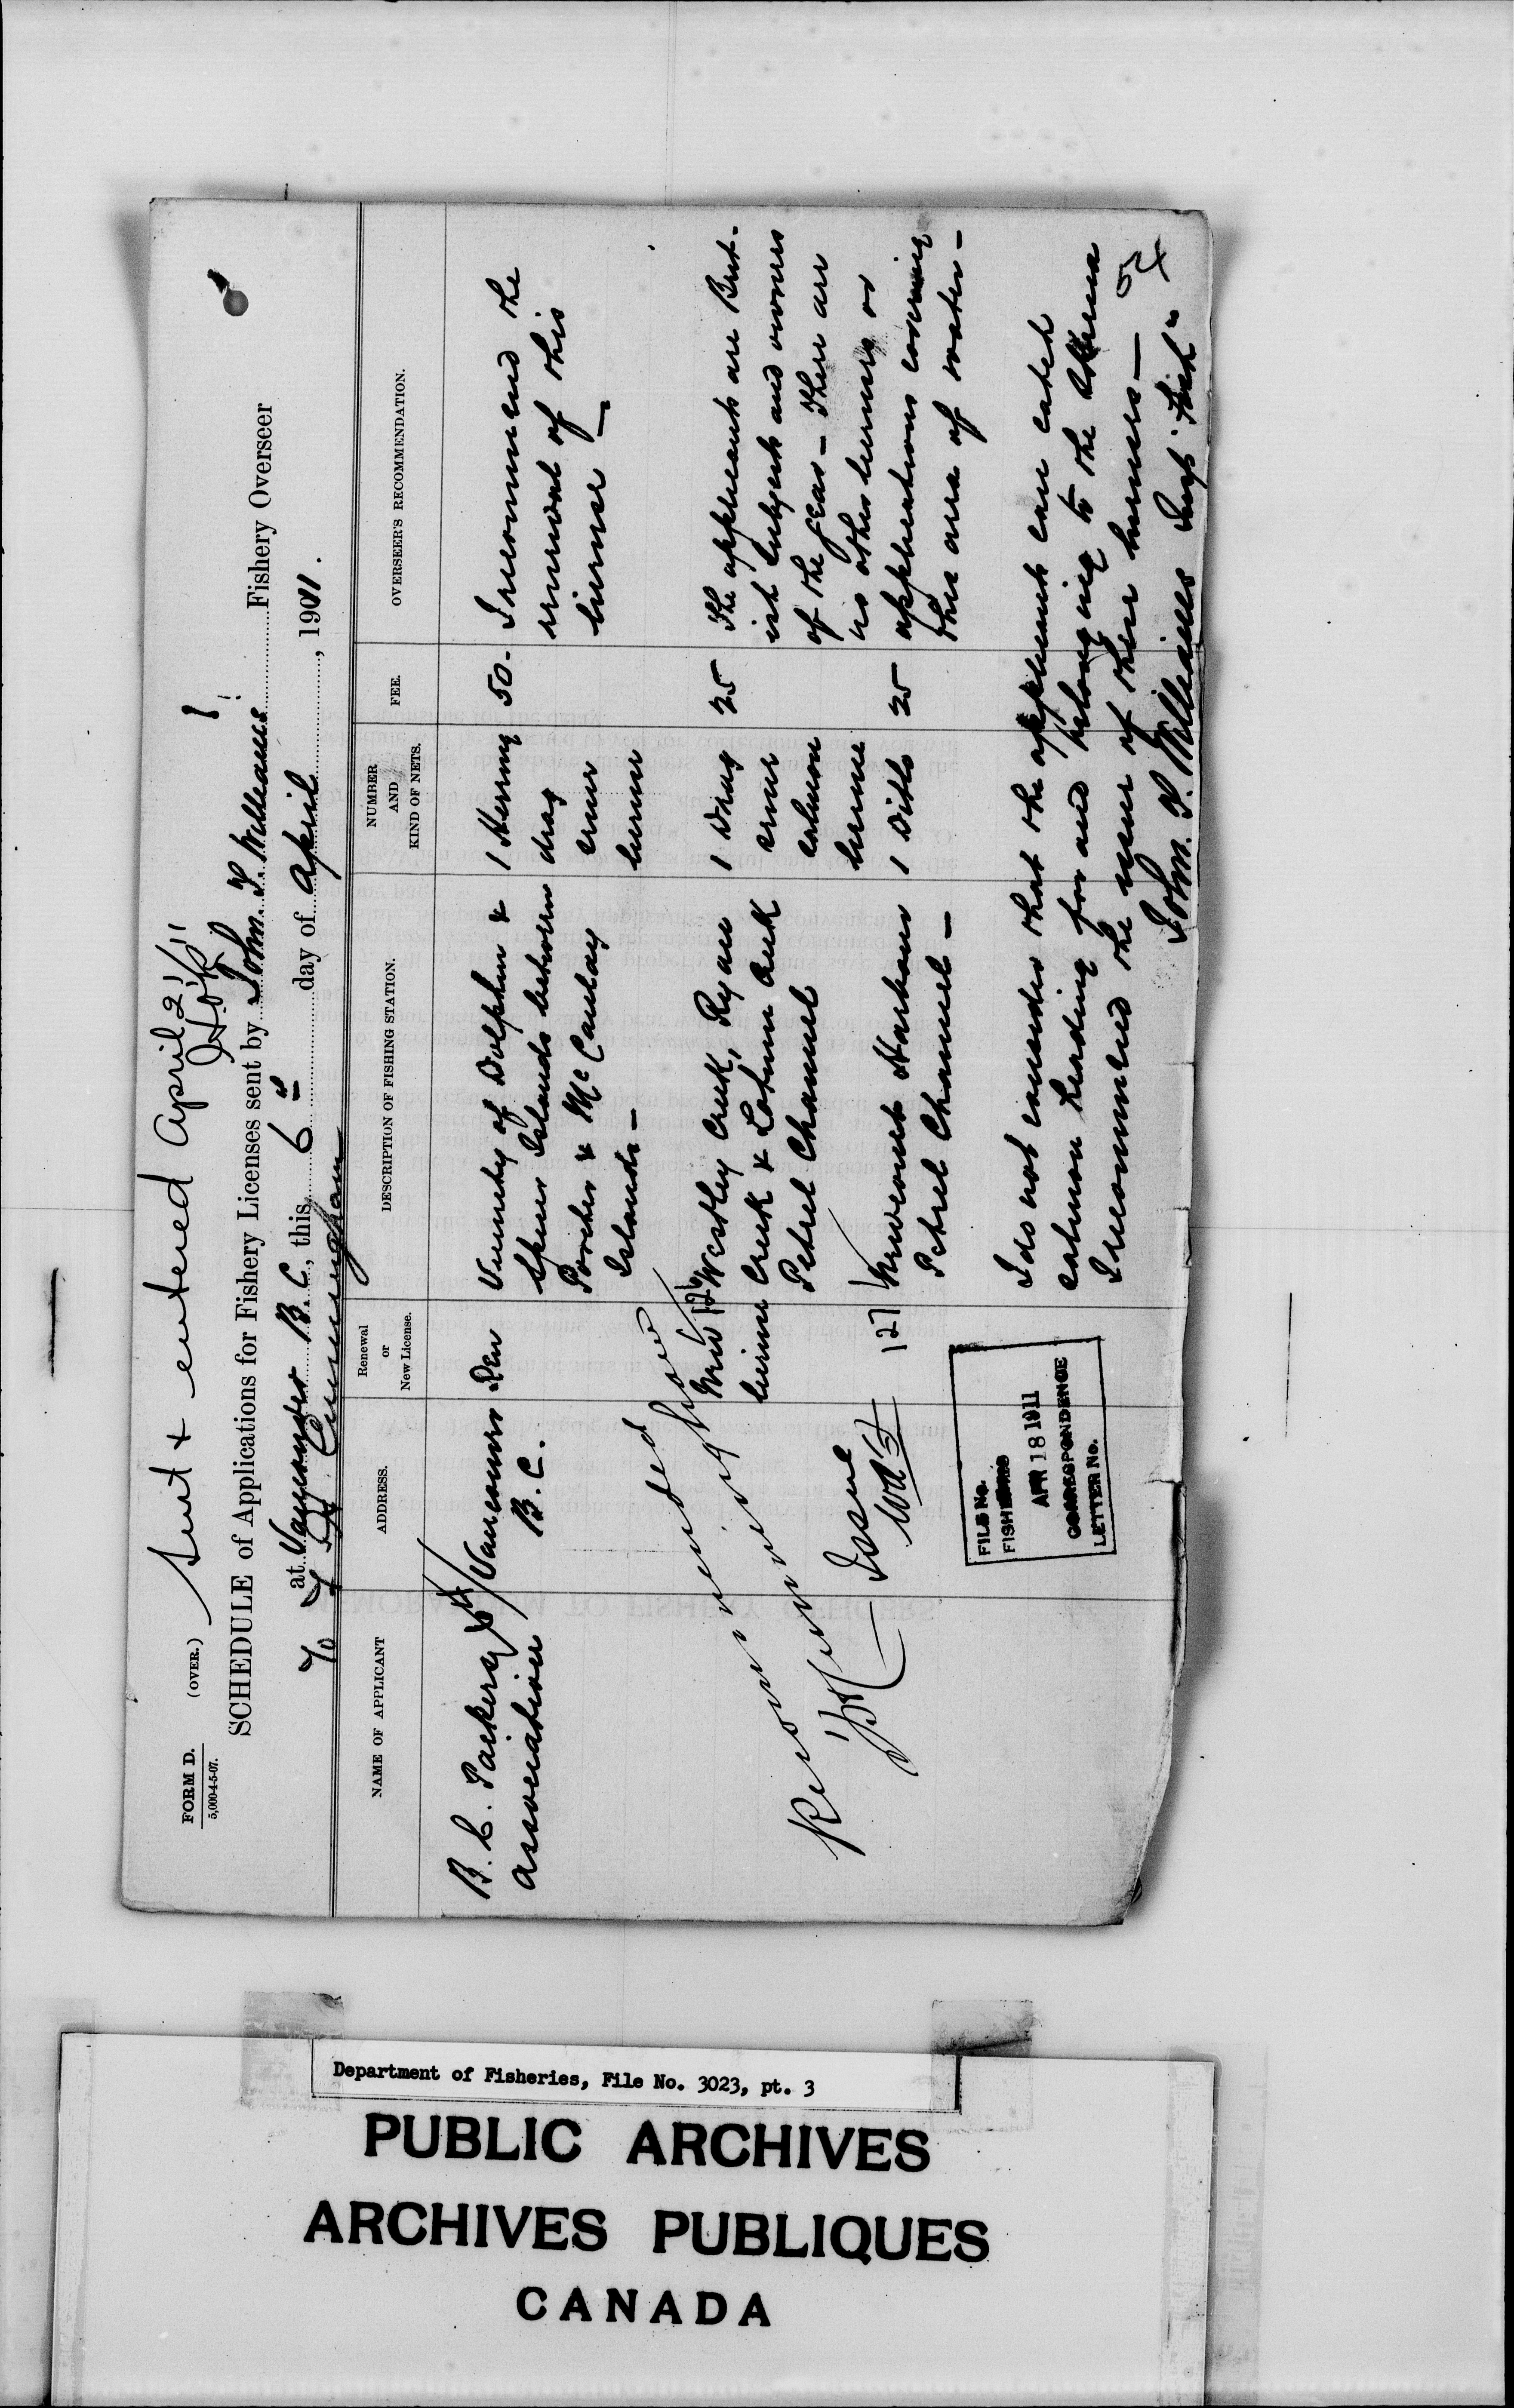 FORM D.
5,000-4-5-07.
(OVER.)
Sent & entered April 21/11
SCHEDULE of Applications for Fishery Licenses sent by John. T. Williams Fishery Overseer
at Vancouver B.C., this 6th day of April, 1911.
Cunningham
NAME OF APPLICANT
ADDRESS.
Renewal
or
New License.
DESCRIPTION OF FISHING STATION.
NUMBER
AND
KIND OF NETS.
FEE.
OVERSEER'S RECOMMENDATION.
B.C. Packers
Association
Vancouver
B.C.
Ren
Vicinity of Dolphin &
Spicer Islands between
Porcher & McCauley
Islands -
1 Herring
drag
seine
license
50.
I recommend the
renewal of this
license -
New
license
126
Westley Creek, Ryan
Creek & Creek
Petrel Channel
1 Drag
seine
salmon
license
25
The applicants are Brit-
ish subjects and owners
of the gear - There are
no other licenses or
applications covering
this area of water -
127
Newcombe Harbour
Petrel Channel -
1 Ditto
25
I do not consider that the applicants can catch
salmon heading for and belonging to the Skeena
I recommend the issue of these licenses -
John. T. Williams Insp. Fish
54
Recommended
Issue
FILE No.
FISHERIES
APR 18 1911
CORRESPONDENCE
LETTER No.
Department of Fisheries, File No. 3023, pt. 3
PUBLIC ARCHIVES
ARCHIVES PUBLIQUES
CANADA